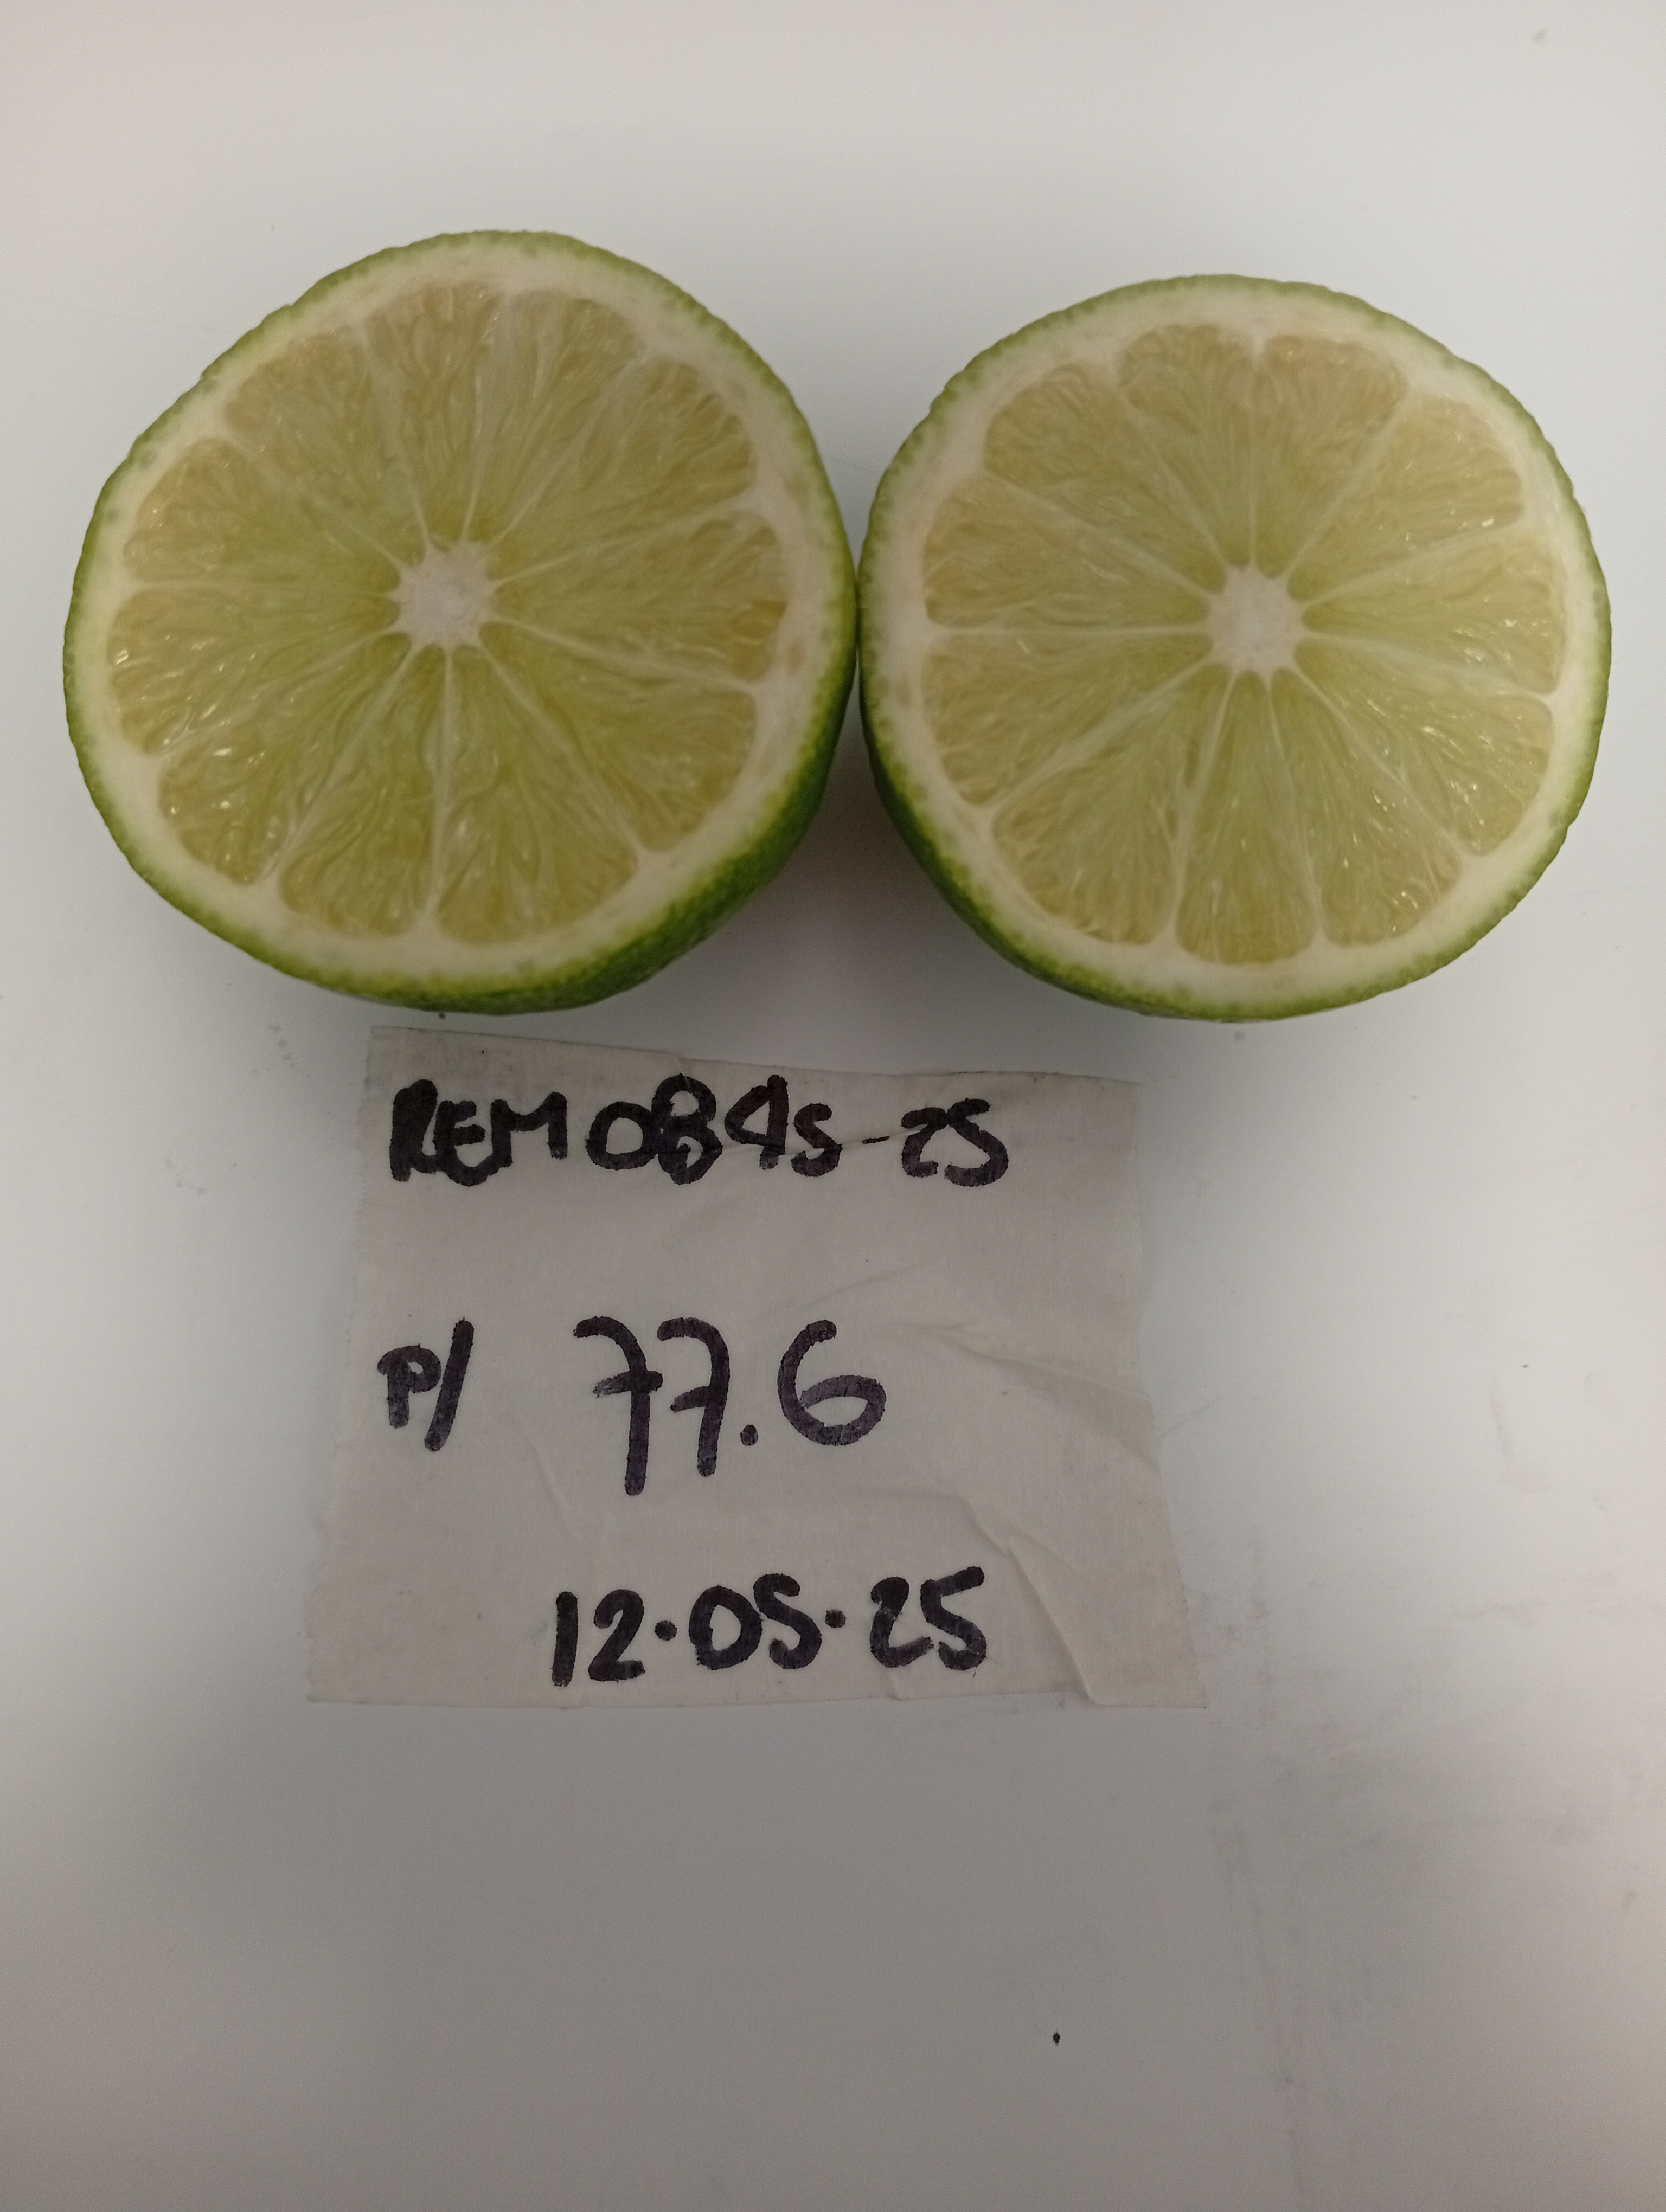 REM0845-25
P/ 77.6
12.05.25